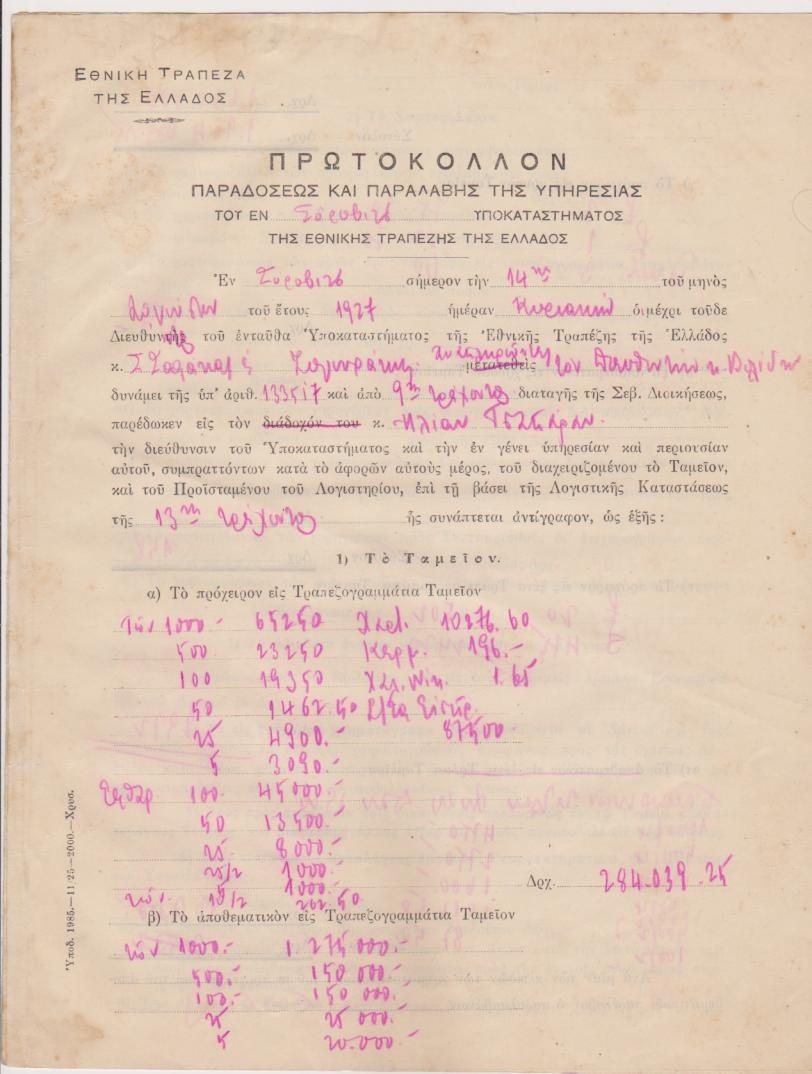 ΕΘΝΙΚΗ ΤΡΑΠΕΖΑ
ΤΗΣ ΕΛΛΑΔΟΣ
ΠΡΩΤΟΚΟΛΛΟΝ
ΠΑΡΑΔΟΣΕΩΣ ΚΑΙ ΠΑΡΑΛΑΒΗΣ ΤΗΣ ΥΠΗΡΕΣΙΑΣ
ΤΟΥ ΕΝ Σόροβιτς ΥΠΟΚΑΤΑΣΤΗΜΑΤΟΣ
ΤΗΣ ΕΘΝΙΚΗΣ ΤΡΑΠΕΖΗΣ ΤΗΣ ΕΛΛΑΔΟΣ
Ἐν Σόροβιτς σήμερον τὴν 14ην τοῦ μηνὸς
τοῦ ἔτους 1927 ἡμέραν Κυριακὴν ὁ μέχρι τοῦδε
Διευθυντὴς τοῦ ἐνταῦθα Ὑποκαταστήματος τῆς Ἐθνικῆς Τραπέζης τῆς Ἑλλάδος
κ. μετατεθεὶς τὸν Διευθυντὴν κ.
δυνάμει τῆς ὑπ' ἀριθ. 133517 καὶ ἀπὸ 9ης τρέχοντος διαταγῆς τῆς Σεβ. Διοικήσεως,
παρέδωκεν εἰς τὸν διάδοχόν του κ. Ηλίαν
τὴν διεύθυνσιν τοῦ Ὑποκαταστήματος καὶ τὴν ἐν γένει ὑπηρεσίαν καὶ περιουσίαν
αὐτοῦ, συμπραττόντων κατὰ τὸ ἀφορῶν αὐτοὺς μέρος, τοῦ διαχειριζομένου τὸ Ταμεῖον,
καὶ τοῦ Προϊσταμένου τοῦ Λογιστηρίου, ἐπὶ τῇ βάσει τῆς Λογιστικῆς Καταστάσεως
τῆς 13ης τρέχοντος ἧς συνάπτεται ἀντίγραφον, ὡς ἑξῆς :
1) Τὸ Ταμεῖον.
α) Τὸ πρόχειρον εἰς Τραπεζογραμμάτια Ταμεῖον
τῶν 1000 - 65250 10276.60
500 23250 Κερμ. 196.-
100 19350 1.65
50 1462.50
25 4900.- 87500
5 3090.-
100 45000.-
50 13500.-
25 8000.-
25/2 1000
1000.-
262.50
Δρχ. 284.039.25
β) Τὸ ἀποθεματικὸν εἰς Τραπεζογραμμάτια Ταμεῖον
τῶν 1000.- 1.275000.-
500.- 150000.-
100.- 150000.-
25 25000.-
5 20.000.-
Ὑποδ. 1985.—11/25—2000.—Χρυσ.